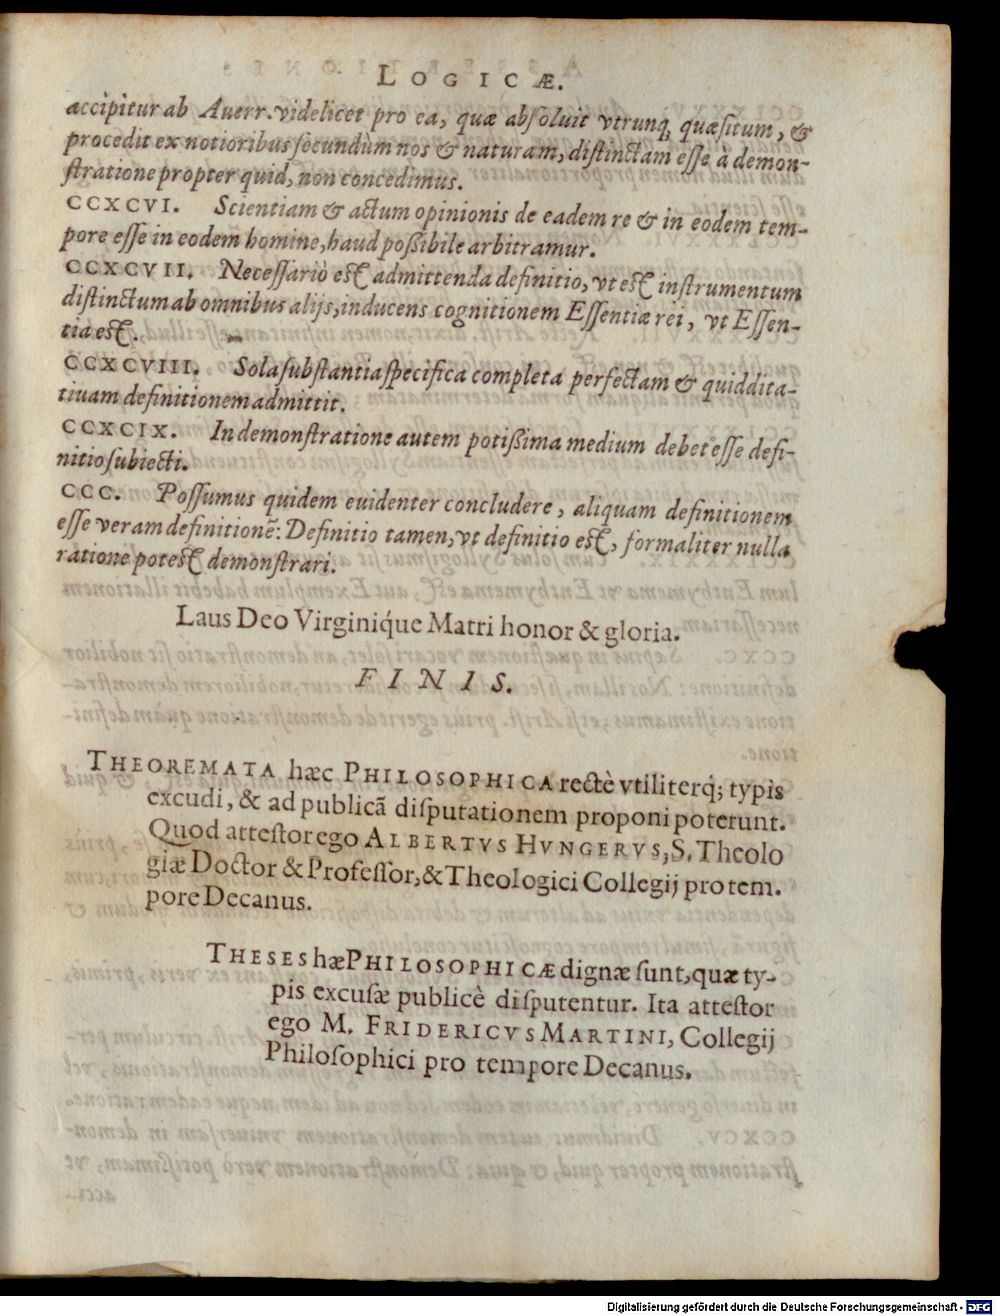 LOGICÆ.
accipitur ab Auerr. videlicet pro ea, quæ absoluit vtrunq, quæsitum, &
procedit ex notioribus secundum nos & naturam, distinctam esse à demon-
stratione propter quid, non concedimus.
CCXCVI. Scientiam & actum opinionis de eadem re & in eodem tem-
pore esse in eodem homine, haud poßibile arbitramur.
CCXCVII. Necessariò est admittenda definitio, vt est instrumentum
distinctum ab omnibus alijs, inducens cognitionem Essentiæ rei, vt Essen-
tia est.
CCXCVIII. Sola substantia specifica completa perfectam & quiddita-
tiuam definitionem admittit.
CCXCIX. In demonstratione autem potißima medium debet esse defi-
nitio subiecti.
CCC. Possumus quidem euidenter concludere, aliquam definitionem
esse veram definitionẽ: Definitio tamen, vt definitio est, formaliter nulla
ratione potest demonstrari.
Laus Deo Virginiq́ue Matri honor & gloria.
FINIS.
THEOREMATA hæc PHILOSOPHICA rectè vtiliterq́; typis
excudi, & ad publicã disputationem proponi poterunt.
Quod attestor ego ALBERTVS HVNGERVS, S. Theolo
giæ Doctor & Professor, & Theologici Collegij pro tem.
pore Decanus.
THESES hæ PHILOSOPHICÆ dignæ sunt, quæ ty-
pis excusæ publicè disputentur. Ita attestor
ego M. FRIDERICVS MARTINI, Collegij
Philosophici pro tempore Decanus.
Digitalisierung gefördert durch die Deutsche Forschungsgemeinschaft - DFG